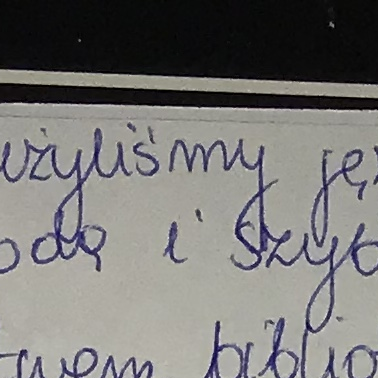 użyliśmy ję
odę i szyb
twem biblio